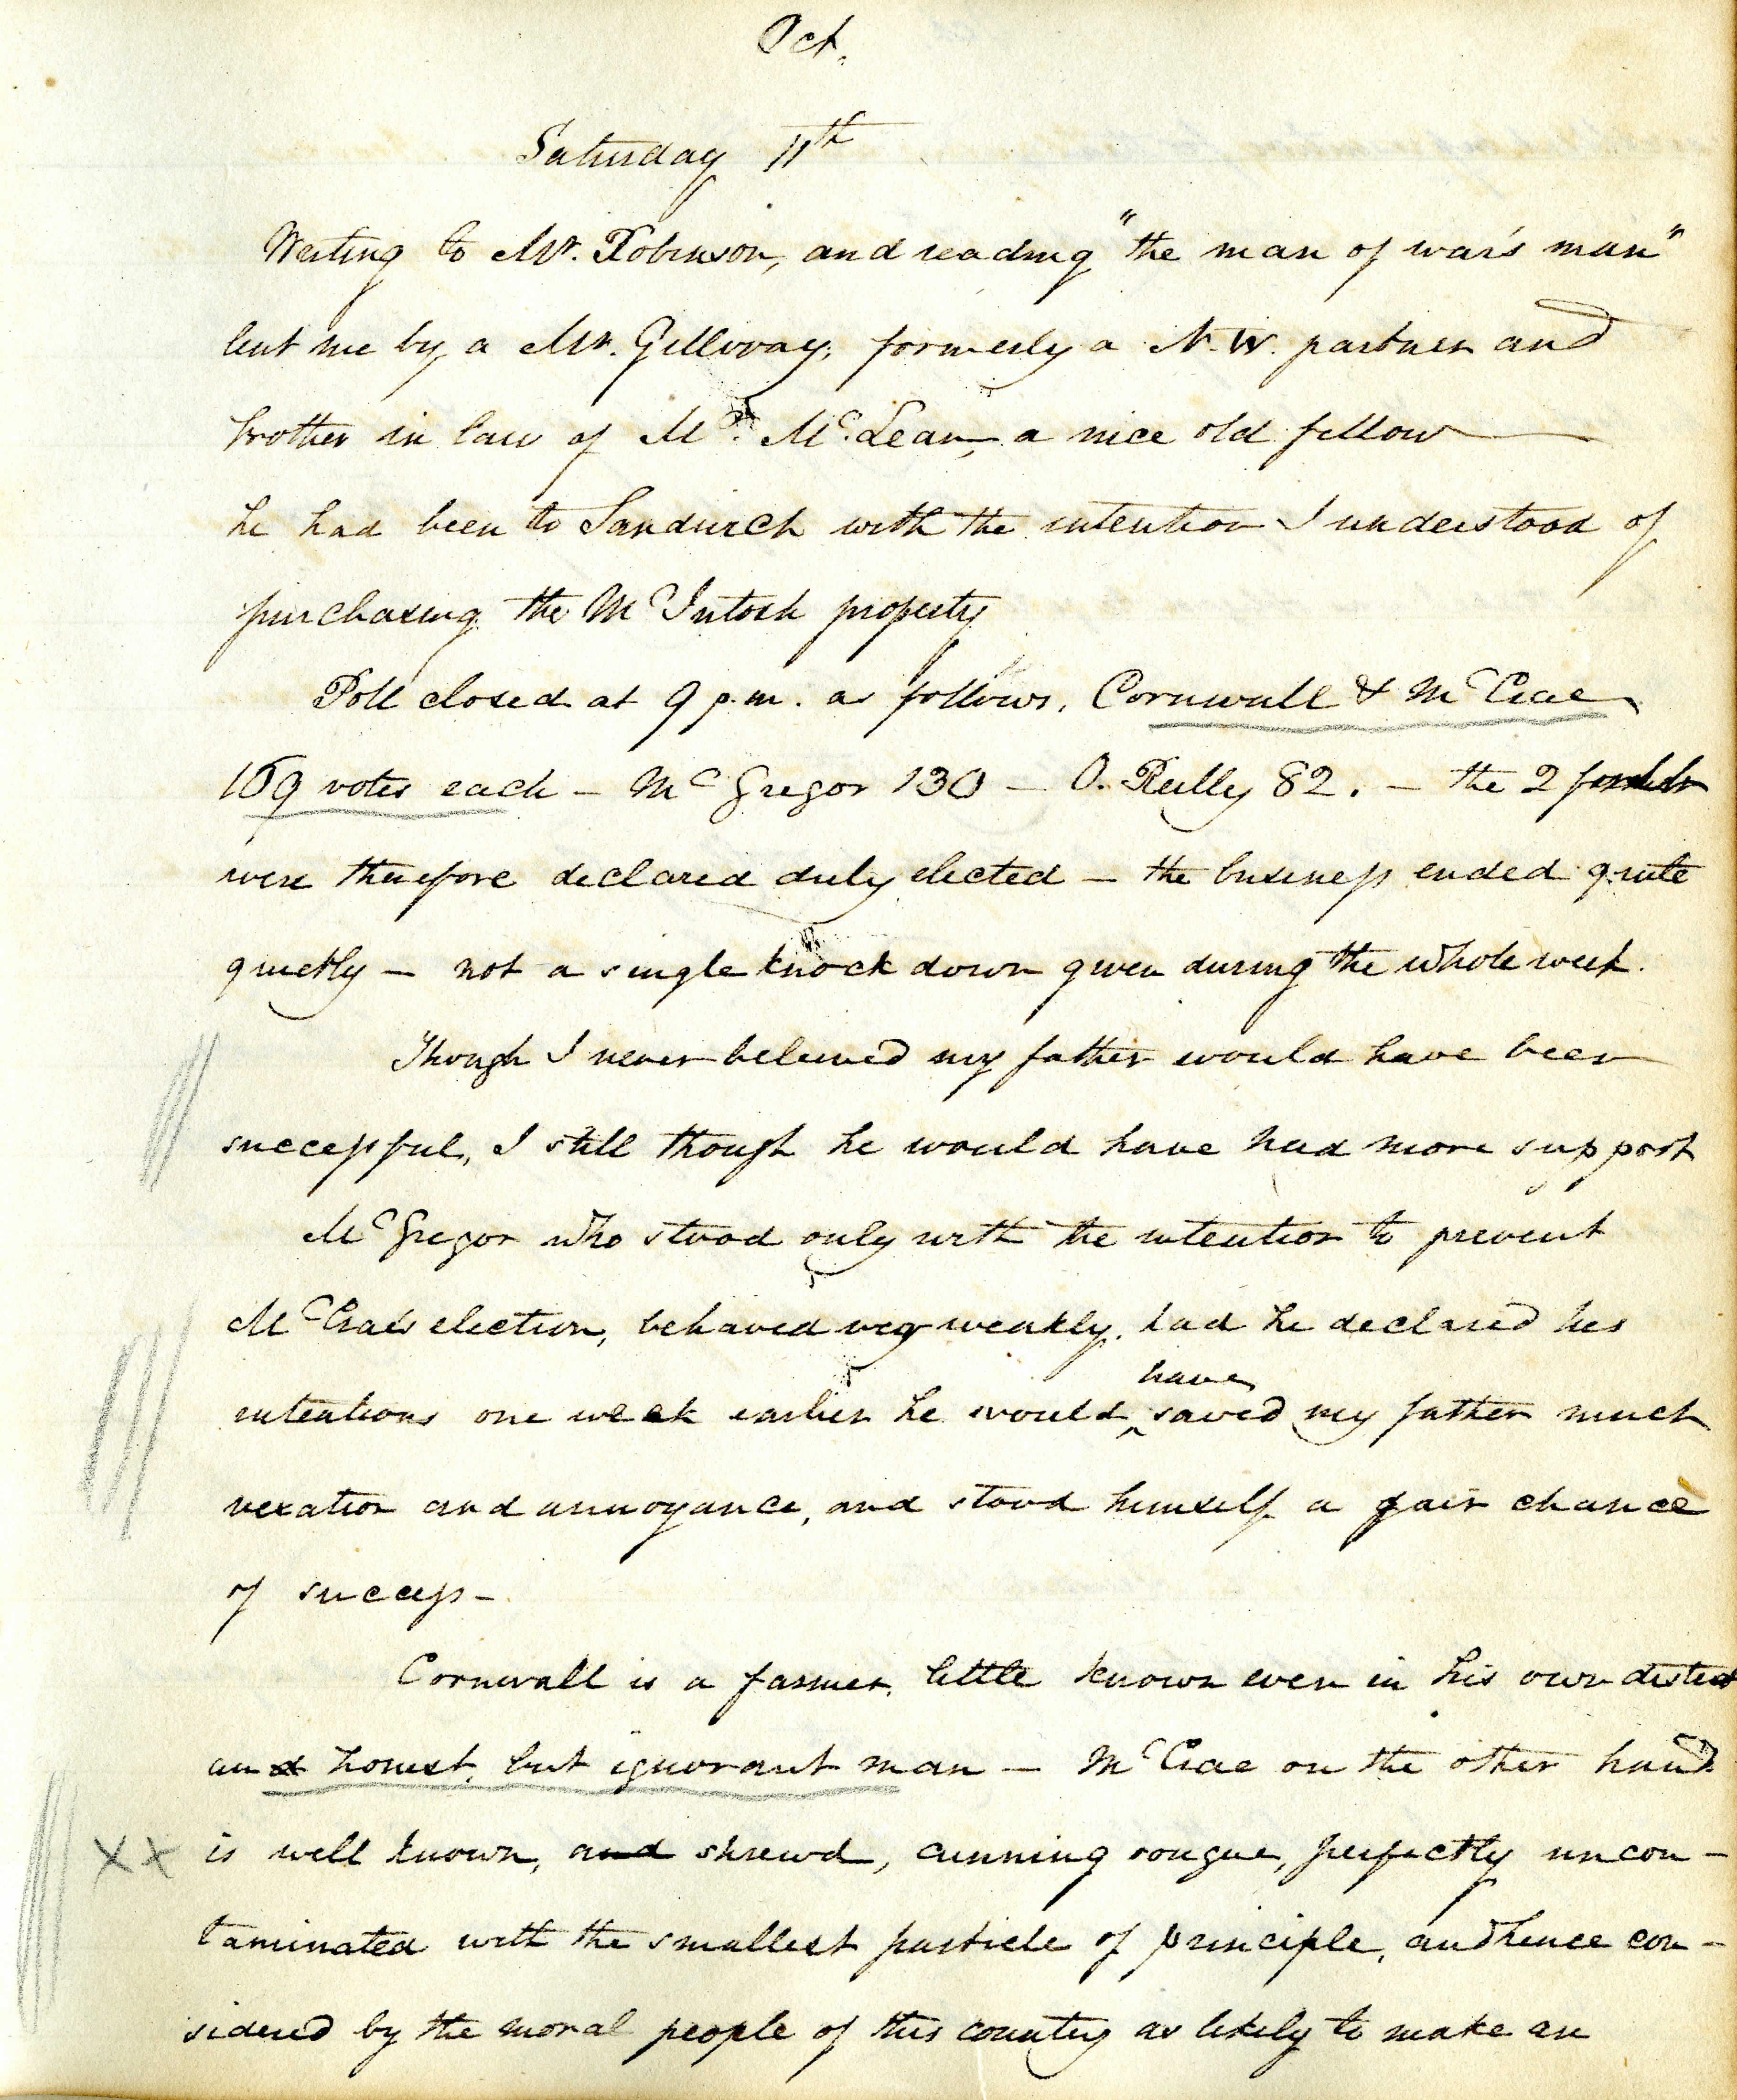 Oct.
Saturday 11th
Writing to Mr. Robinson, and reading "the man of war's man"
lent me by a Mr. Gillivray, formerly a N.W. partner and
brother in law of Mr. McLean, a nice old fellow
he had been to Sandwich with the intention I understood of
purchasing the McIntosh property
Poll closed at 9 p.m. as follows, Cornwall & McCrae
169 votes each – McGregor 130 – O. Reilly 82. – the 2 former
were therefore declared duly elected – the business ended quite
quietly – not a single knock down given during the whole week.
Though I never believed my father would have been
successful, I still though he would have had more support
McGregor who stood only with the intention to prevent
McCrae's election, behaved very weakly, had he declared his
intentions one week earlier he would have saved my father much
vexation and annoyance, and stood himself a fair chance
of success –
Cornwall is a farmer, little known even in his own district
an honest, but ignorant man – McCrae on the other hand
xx is well known, and shrewd, cunning rougue, perfectly uncon-
taminated with the smallest particle of principle, and hence con-
sidered by the moral people of this country as likely to make an